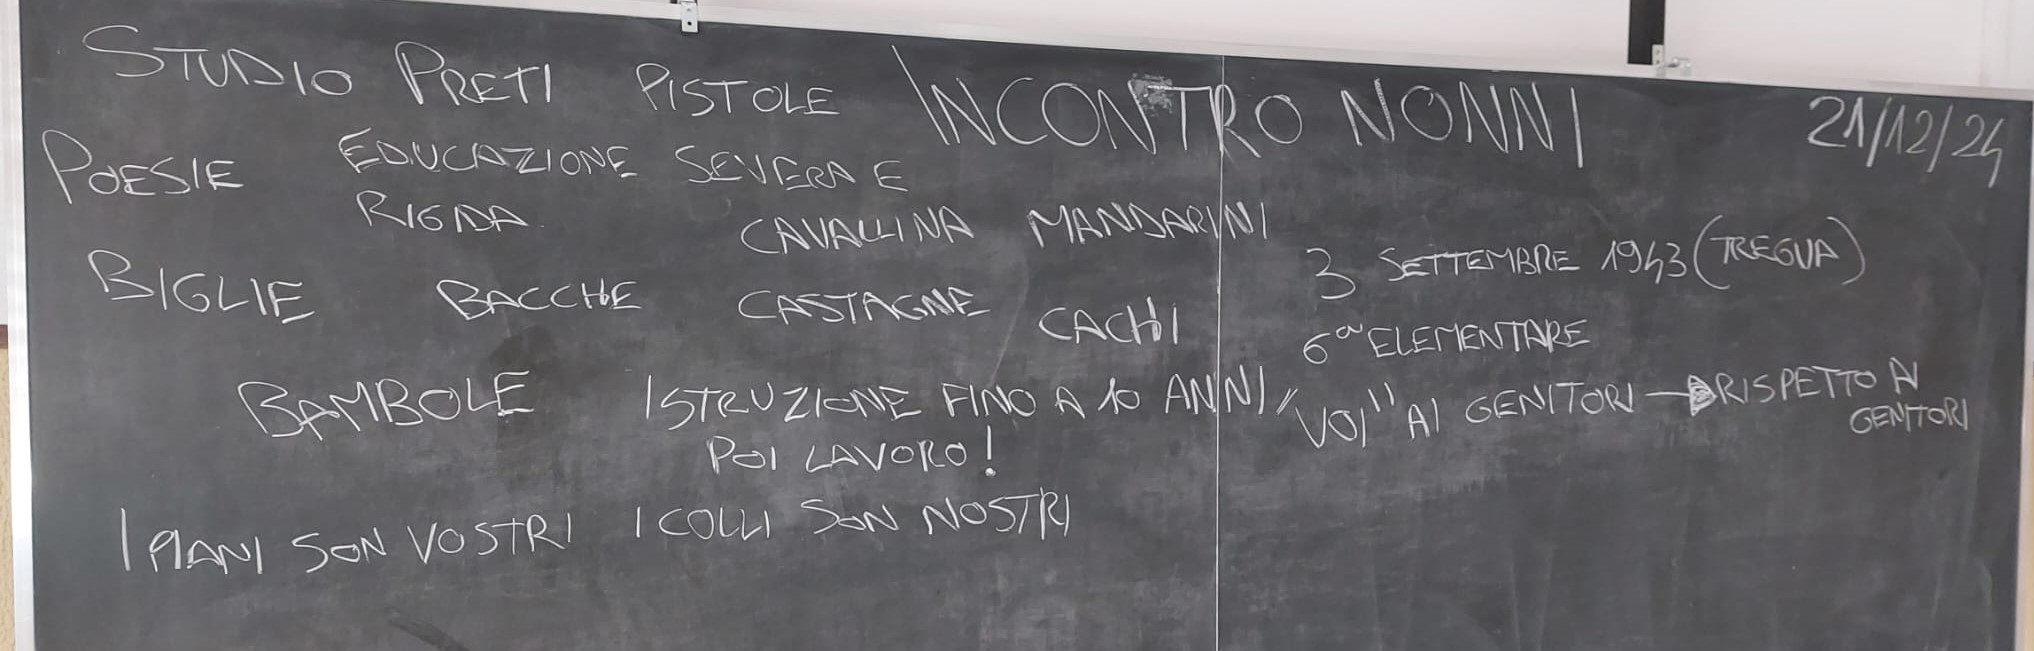 STUDIO PRETI PISTOLE INCONTRO NONNI 21/12/24
POESIE EDUCAZIONE SEVERA E
RIGIDA
CAVALLINA MANDARINI
3 SETTEMBRE 1943 (TREGUA)
BIGLIE BACCHE CASTAGNE CACHI
6a ELEMENTARE
BAMBOLE ISTRUZIONE FINO A 10 ANNI
POI LAVORO!
"VOI" AI GENITORI → RISPETTO AI
GENITORI
I PIANI SON VOSTRI I COLLI SON NOSTRI